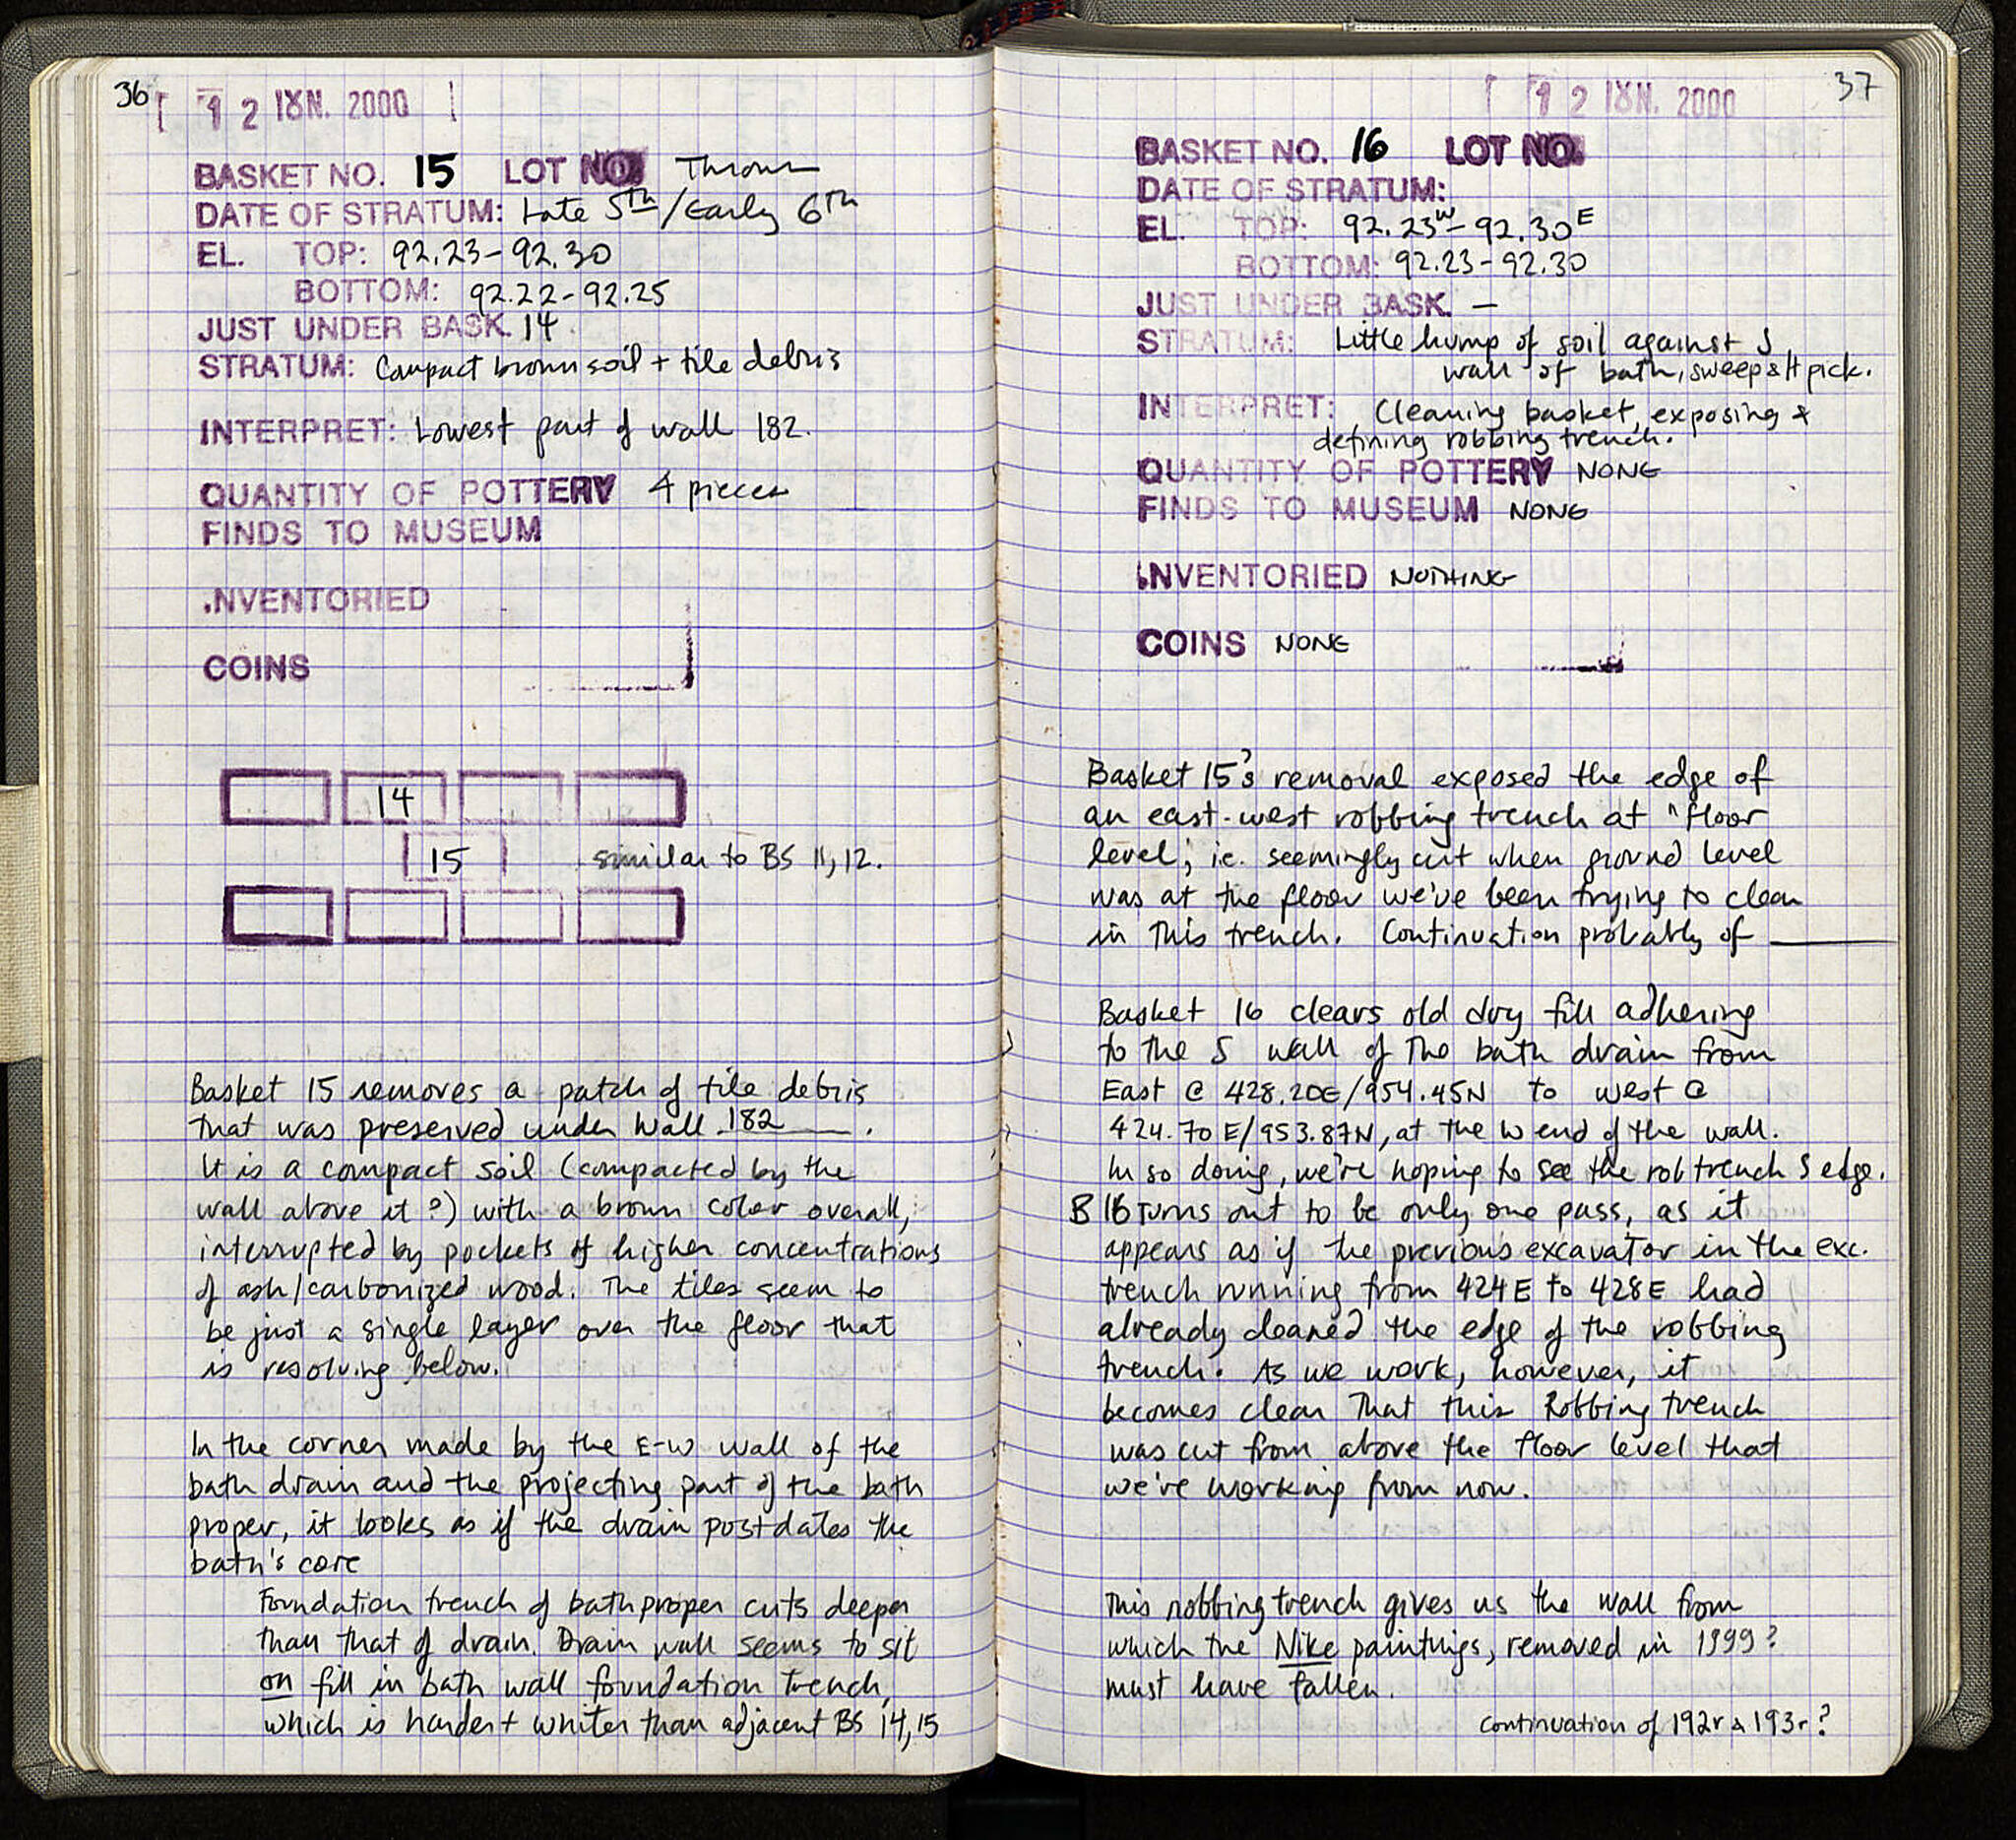 36
12 ΙΟΥΝ. 2000
BASKET NO. 15 LOT NO. Thrown
DATE OF STRATUM: Late 5th/Early 6th
EL. TOP: 92.23-92.30
BOTTOM: 92.22-92.25
JUST UNDER BASK. 14
STRATUM: Compact brown soil + tile debris
INTERPRET: Lowest part of wall 182.
QUANTITY OF POTTERY 4 pieces
FINDS TO MUSEUM
INVENTORIED
COINS
14
15 similar to BS 11, 12.
Basket 15 removes a patch of tile debris
that was preserved under wall 182.
It is a compact soil (compacted by the
wall above it?) with a brown color overall,
interrupted by pockets of higher concentrations
of ash/carbonized wood. The tiles seem to
be just a single layer over the floor that
is resolving below.
In the corner made by the E-W wall of the
bath drain and the projecting part of the bath
proper, it looks as if the drain postdates the
bath's core
Foundation trench of bath proper cuts deeper
than that of drain. Drain wall seems to sit
on fill in bath wall foundation trench,
which is harder + whiter than adjacent BS 14, 15
37
12 ΙΟΥΝ. 2000
BASKET NO. 16 LOT NO.
DATE OF STRATUM:
EL. TOP: 92.23W-92.30E
BOTTOM: 92.23-92.30
JUST UNDER BASK. —
STRATUM: Little hump of soil against S
wall of bath, sweep & H pick.
INTERPRET: Cleaning basket, exposing &
defining robbing trench.
QUANTITY OF POTTERY NONE
FINDS TO MUSEUM NONE
INVENTORIED NOTHING
COINS NONE
Basket 15's removal exposed the edge of
an east-west robbing trench at "floor
level; ie. seemingly cut when ground level
was at the floor we've been trying to clean
in this trench. Continuation probably of ______
Basket 16 clears old dry fill adhering
to the S wall of the bath drain from
East @ 428.20E/954.45N to west @
424.70E/953.87N, at the W end of the wall.
In so doing, we're hoping to see the rob trench S edge.
B 16 turns out to be only one pass, as it
appears as if the previous excavator in the exc.
trench running from 424E to 428E had
already cleaned the edge of the robbing
trench. As we work, however, it
becomes clear that this Robbing trench
was cut from above the floor level that
we're working from now.
This robbing trench gives us the wall from
which the Nike paintings, removed in 1999?
must have fallen.
Continuation of 192r & 193r?